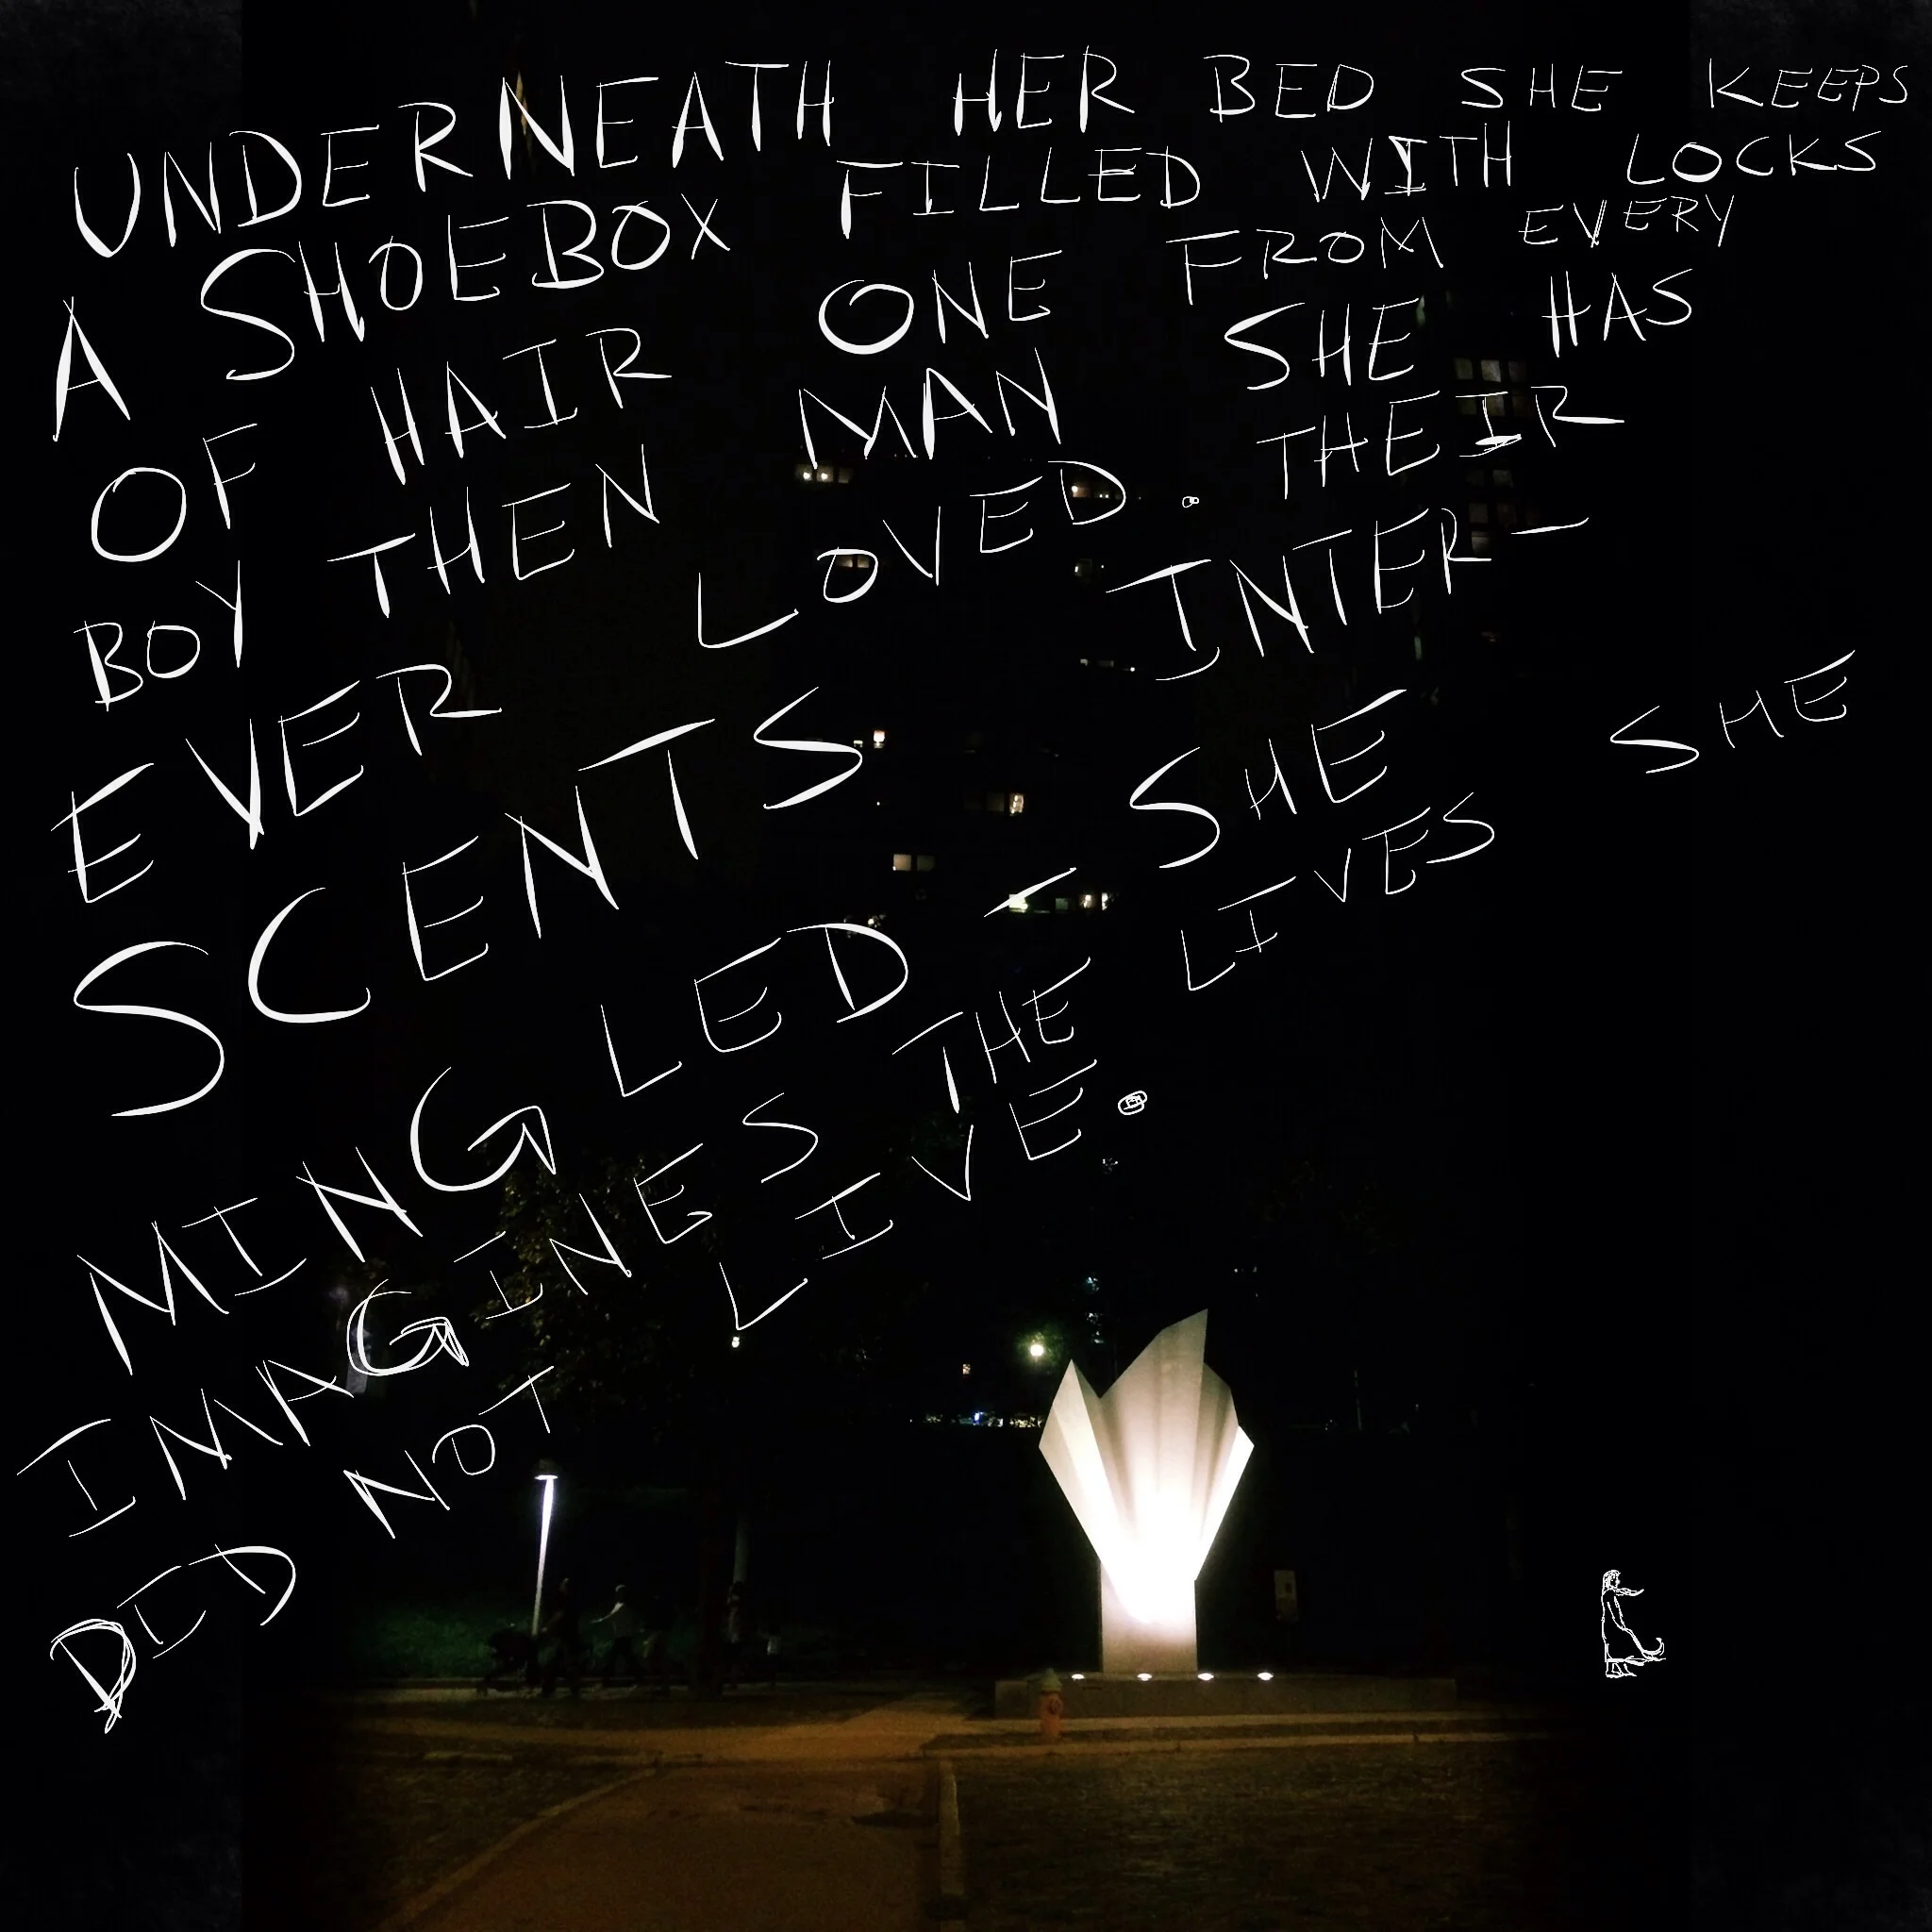 UNDERNEATH HER BED SHE KEEPS
A SHOEBOX FILLED WITH LOCKS
OF HAIR ONE FROM EVERY
BOY THEN MAN SHE HAS
EVER LOVED. THEIR
SCENTS INTER-
MINGLED - SHE
IMAGINES THE LIVES SHE
DID NOT LIVE.